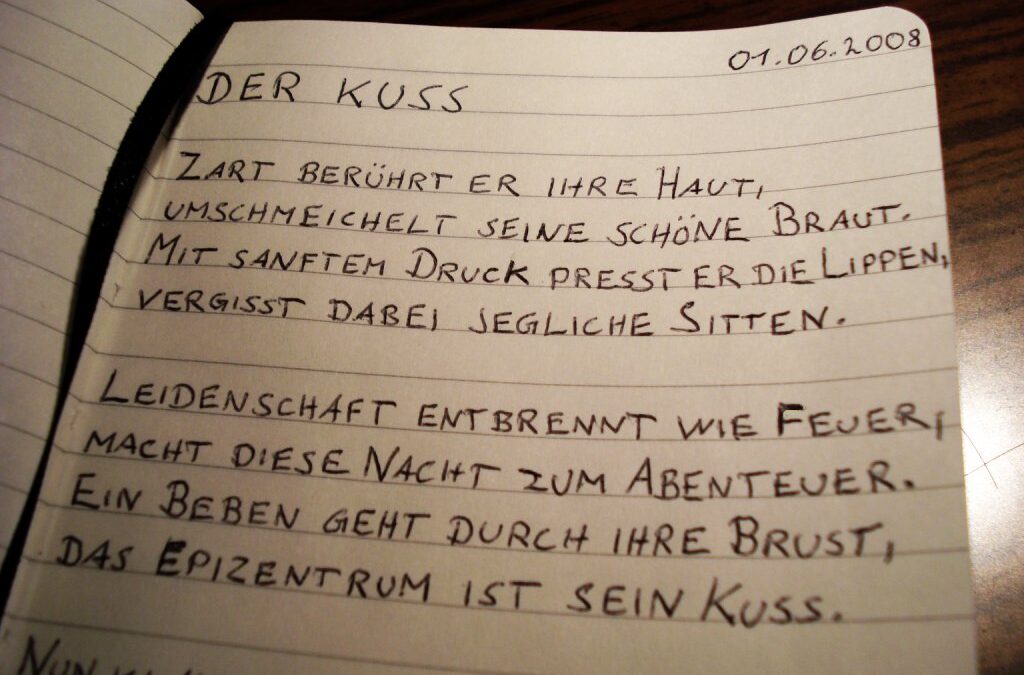 01.06.2008
DER KUSS
ZART BERÜHRT ER IHRE HAUT,
UMSCHMEICHELT SEINE SCHÖNE BRAUT.
MIT SANFTEM DRUCK PRESST ER DIE LIPPEN,
VERGISST DABEI JEGLICHE SITTEN.
LEIDENSCHAFT ENTBRENNT WIE FEUER,
MACHT DIESE NACHT ZUM ABENTEUER.
EIN BEBEN GEHT DURCH IHRE BRUST,
DAS EPIZENTRUM IST SEIN KUSS.
NUN